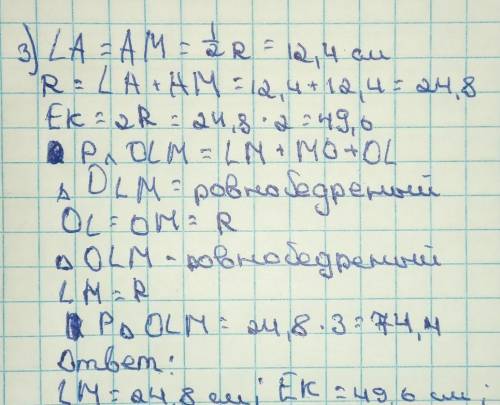 3) LA = AM = 1/2 R = 12,4 см
R = LA + AM = 12,4 + 12,4 = 24,8
EK = 2R = 24,8 · 2 = 49,6
P△ OLM = LM + MO + OL
△ OLM = равнобедреный
OL = OM = R
△ OLM - равнобедреный
LM = R
P△ OLM = 24,8 · 3 = 74,4
Ответ:
LM = 24,8 см; EK = 49,6 см;